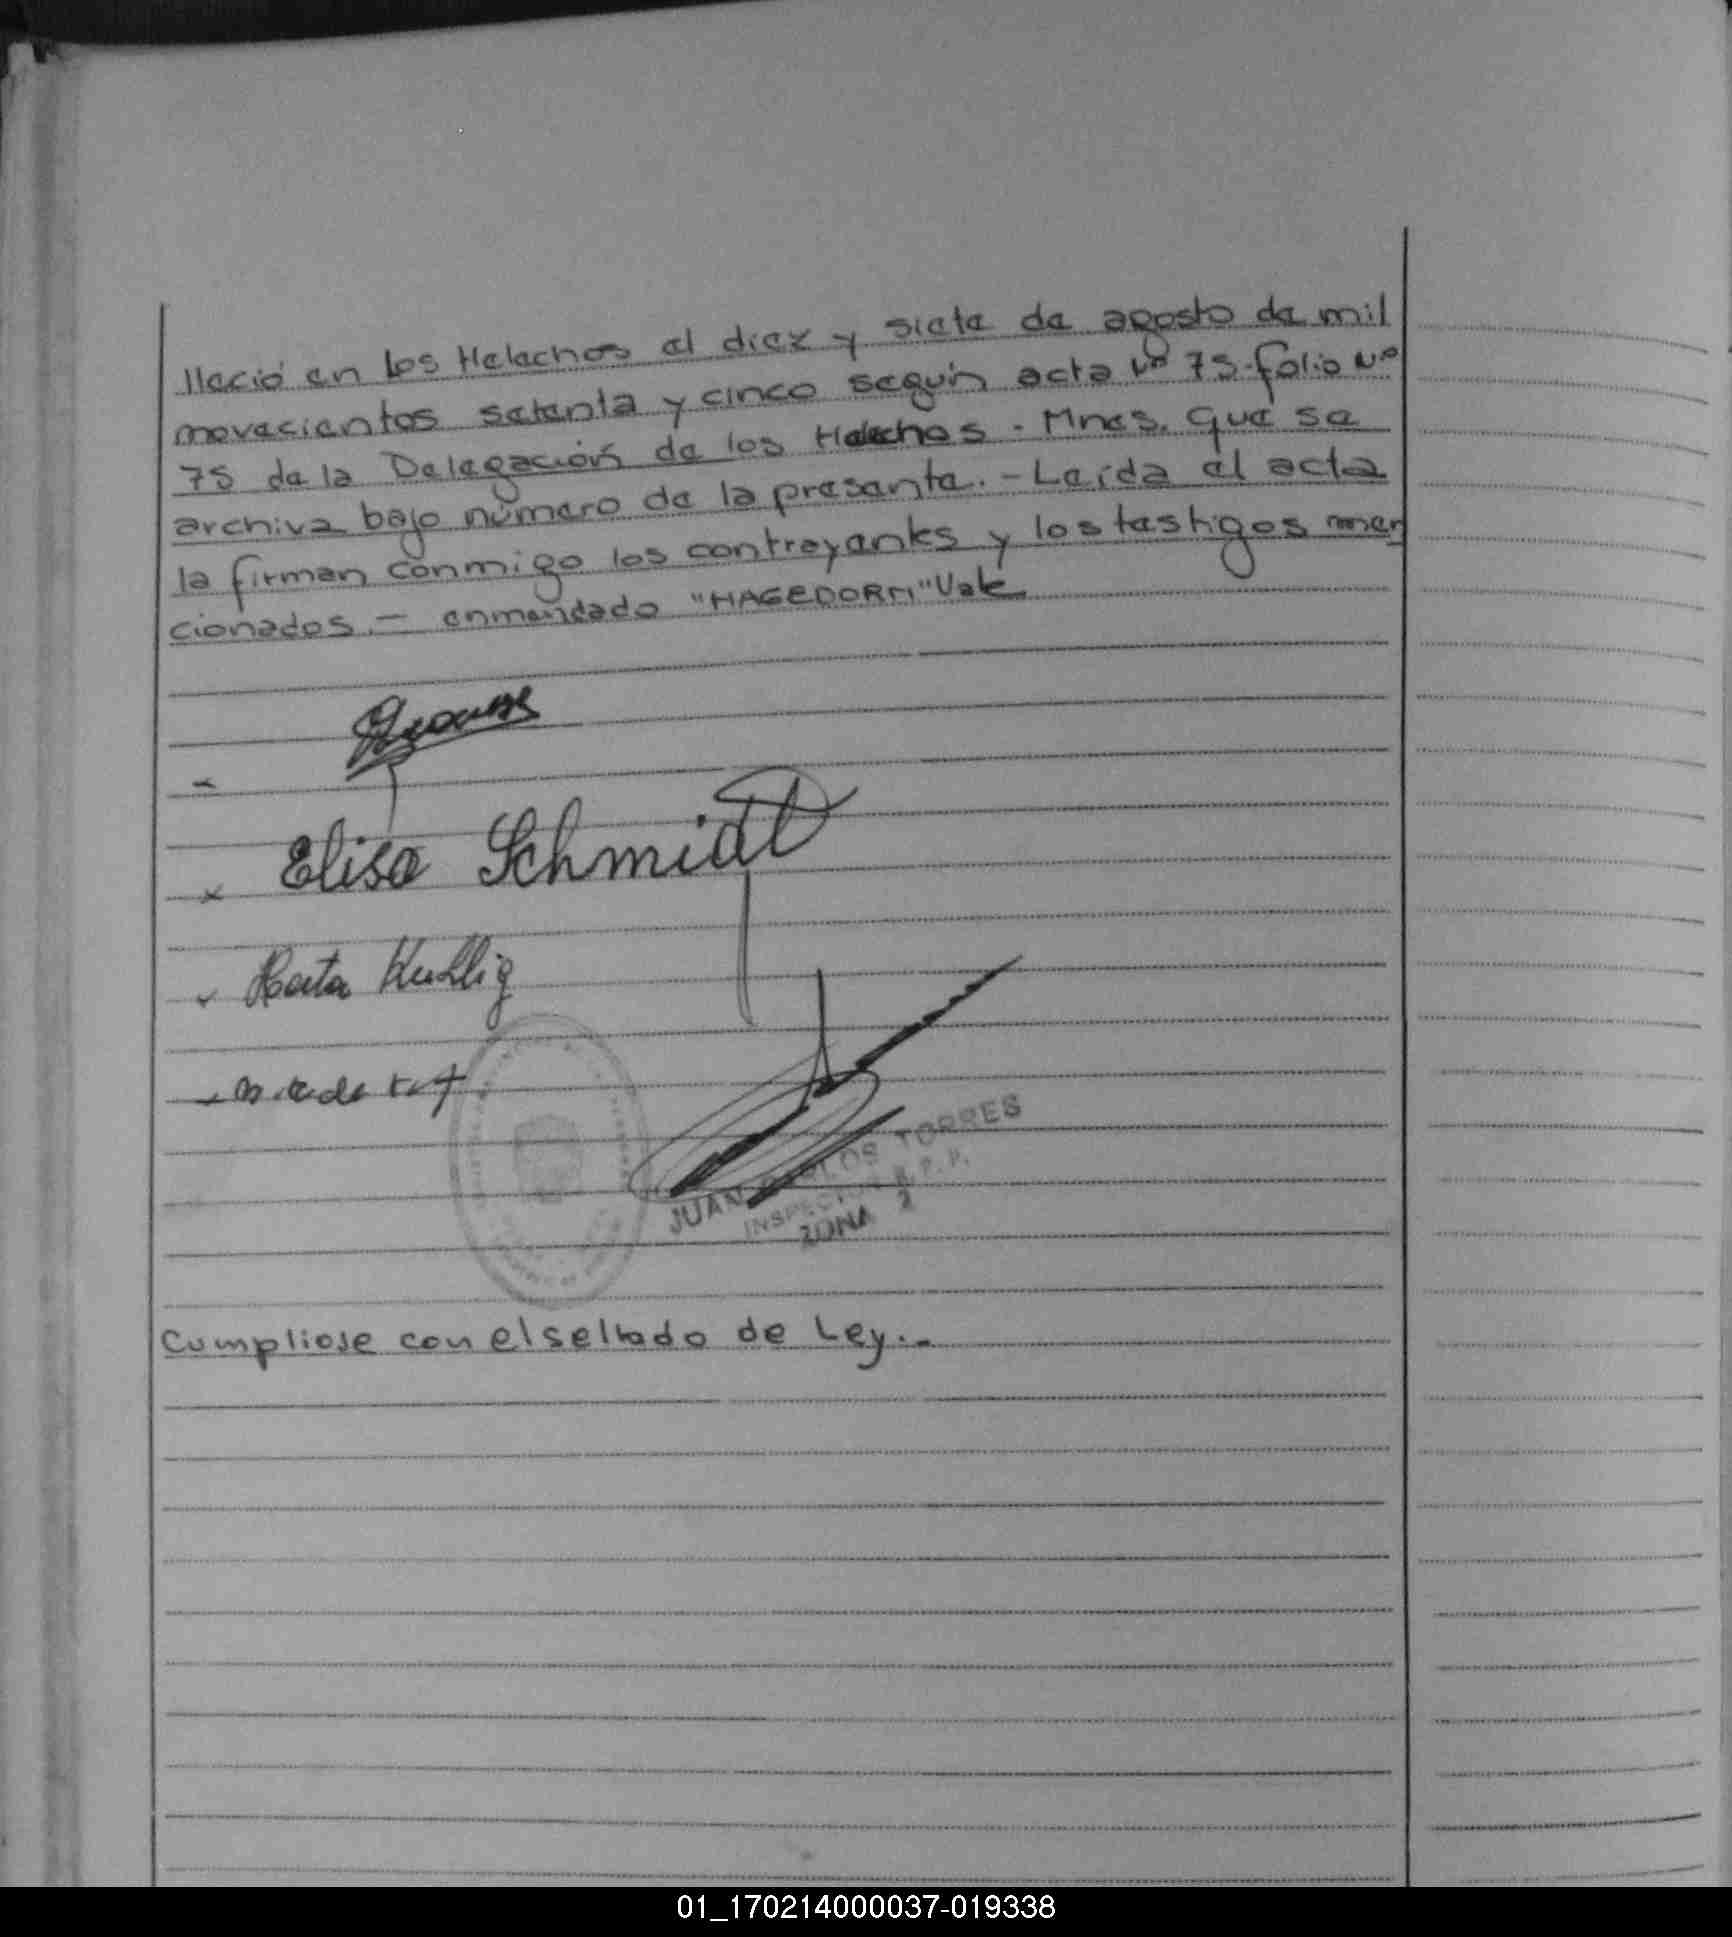 lleció en los Helechos el diez y siete de agosto de mil
novecientos setenta y cinco según acta Nº 75-folio Nº
75 de la Delegación de los Helechos - Mnes. que se
archiva bajo número de la presente. - Leída el acta
la firman conmigo los contrayentes y los testigos men
cionados. - enmendado "HAGEDORN" Vale
Elisa Schmidt
Kuhlig
JUAN CARLOS TORRES
INSPECTOR R.P.P.
ZONA 2
Cumpliose con el sellado de Ley.-
01_170214000037-019338